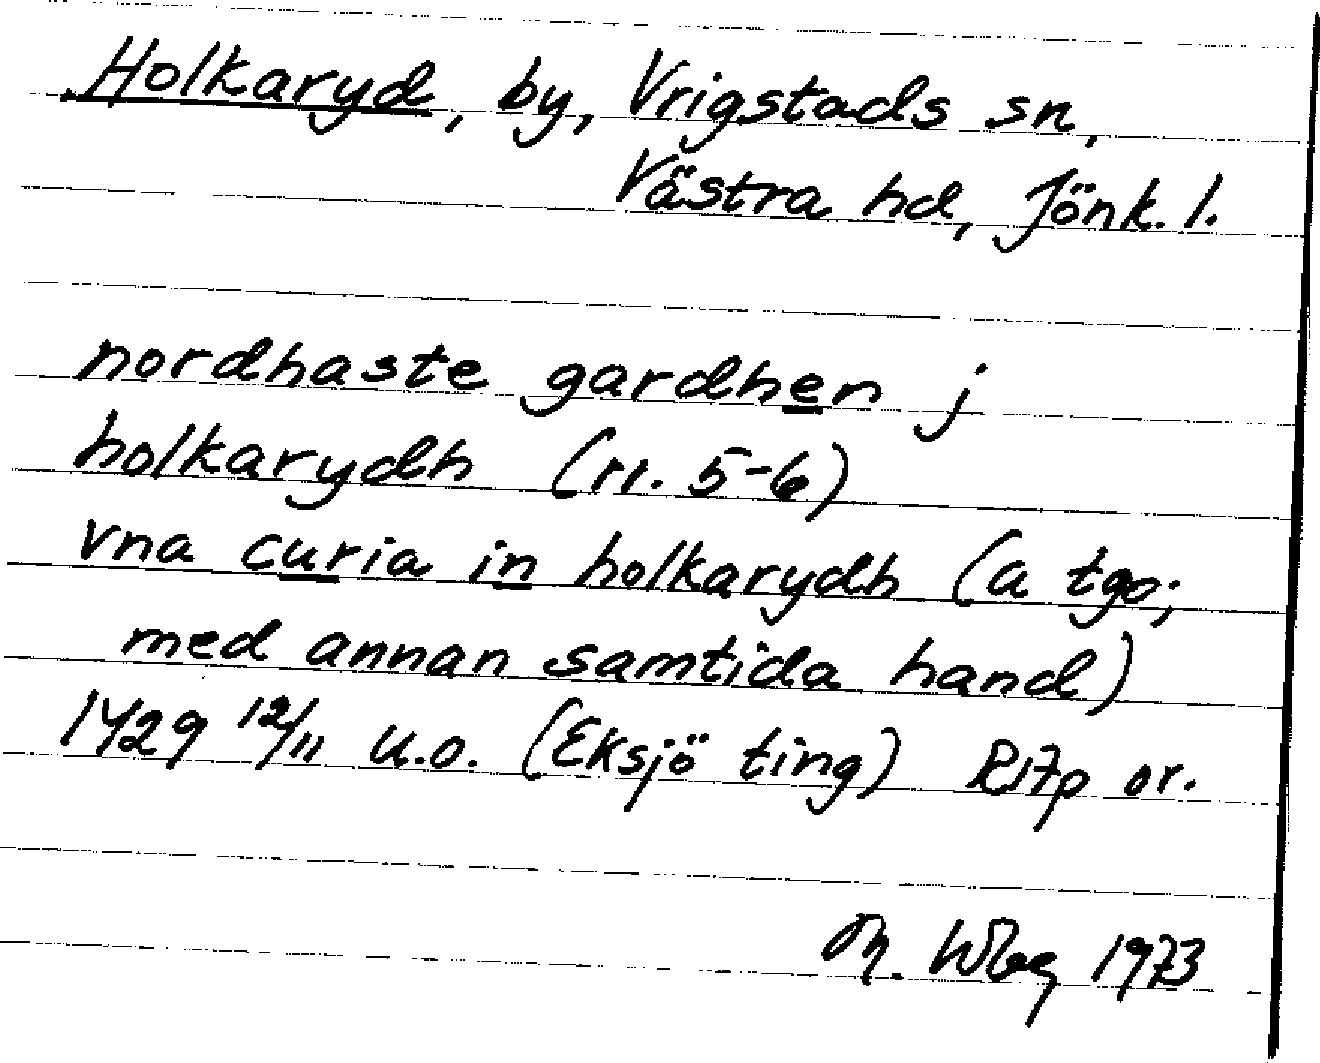 Holkaryd, by, Vrigstads sn,
Västra hd, Jönk. l.
nordhaste gardhen j
holkarydh (rr. 5-6)
vna curia in holkarydh (a tgo;
med annan samtida hand)
1429 12/11 u.o. (Eksjö ting) RAp or.
1973